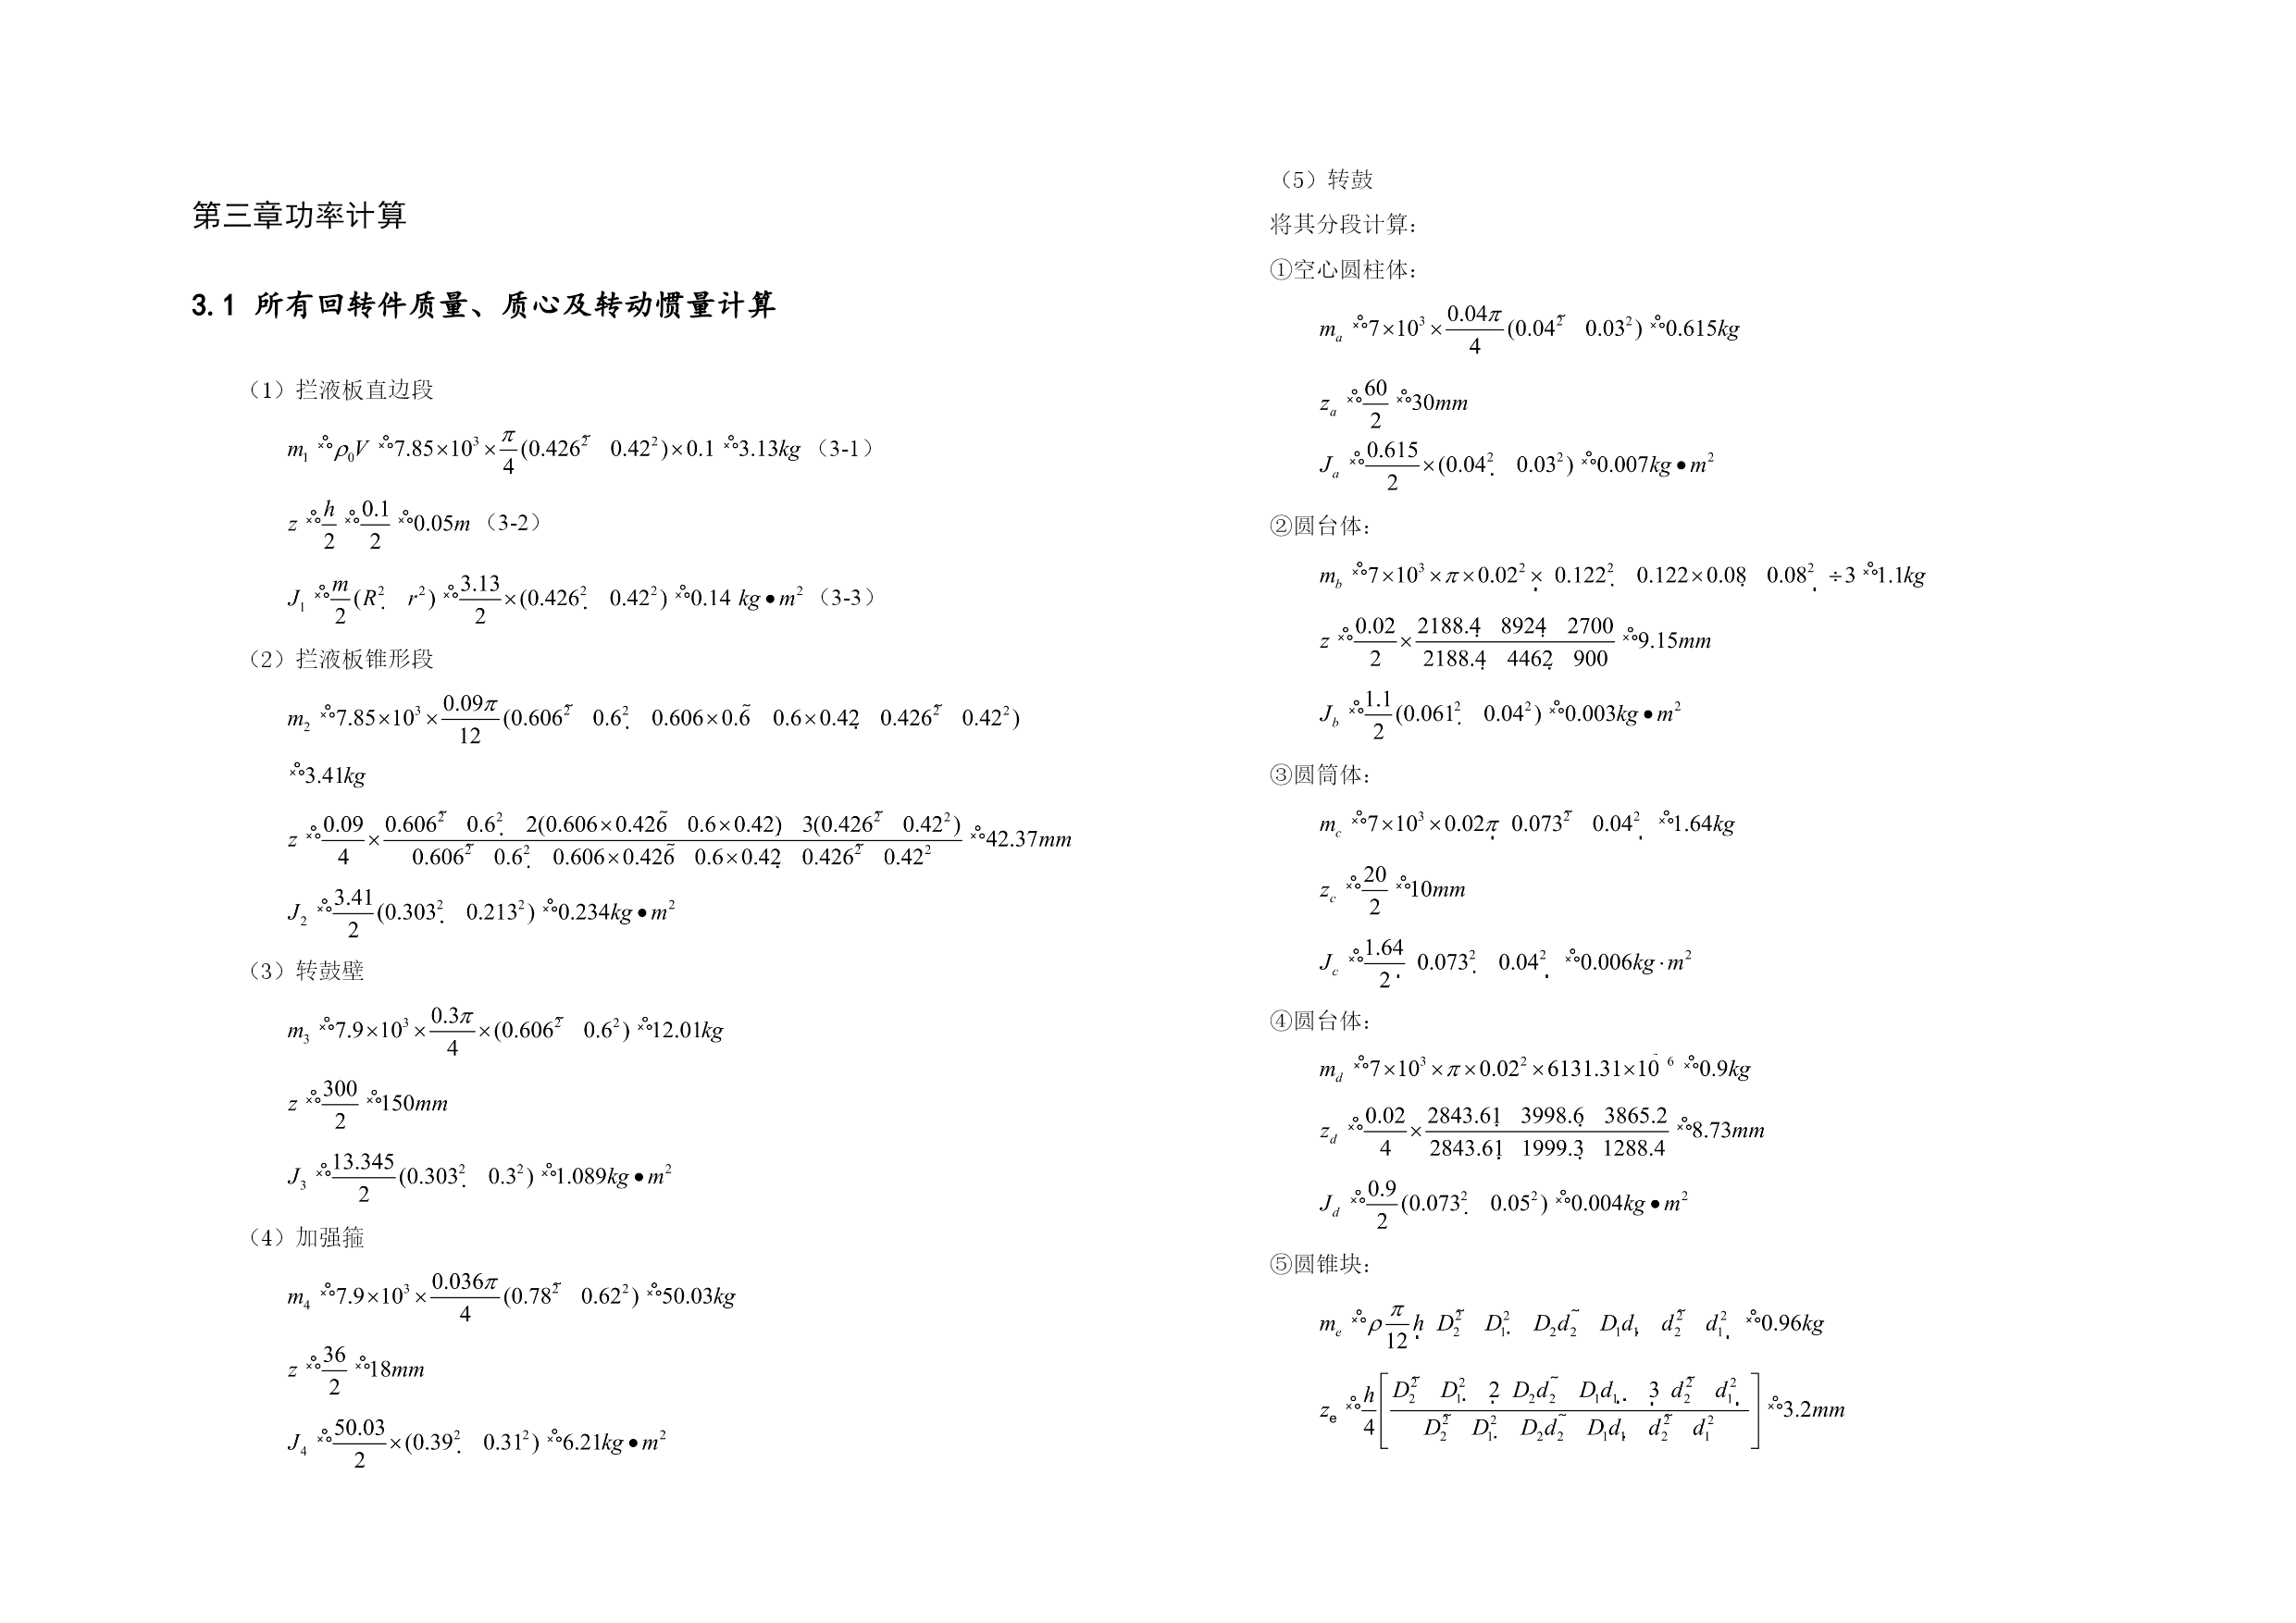 第三章功率计算
3.1 所有回转件质量、质心及转动惯量计算
（1）拦液板直边段
m₁ ρ₀V 7.85×10³×π/4(0.426² 0.42²)×0.1 3.13kg（3-1）
z h/2 0.1/2 0.05m（3-2）
J₁ m/2(R² r²) 3.13/2×(0.426² 0.42²) 0.14 kg●m²（3-3）
（2）拦液板锥形段
m₂ 7.85×10³×0.09π/12(0.606² 0.6² 0.606×0.6 0.6×0.42 0.426² 0.42²)
3.41kg
z 0.09/4×(0.606² 0.6² 2(0.606×0.426 0.6×0.42) 3(0.426² 0.42²))/(0.606² 0.6² 0.606×0.426 0.6×0.42 0.426² 0.42²) 42.37mm
J₂ 3.41/2(0.303² 0.213²) 0.234kg●m²
（3）转鼓壁
m₃ 7.9×10³×0.3π/4×(0.606² 0.6²) 12.01kg
z 300/2 150mm
J₃ 13.345/2(0.303² 0.3²) 1.089kg●m²
（4）加强箍
m₄ 7.9×10³×0.036π/4(0.78² 0.62²) 50.03kg
z 36/2 18mm
J₄ 50.03/2×(0.39² 0.31²) 6.21kg●m²
（5）转鼓
将其分段计算：
①空心圆柱体：
mₐ 7×10³×0.04π/4(0.04² 0.03²) 0.615kg
zₐ 60/2 30mm
Jₐ 0.615/2×(0.04² 0.03²) 0.007kg●m²
②圆台体：
m_b 7×10³×π×0.02²× 0.122² 0.122×0.08 0.08² ÷3 1.1kg
z 0.02/2×(2188.4 8924 2700)/(2188.4 4462 900) 9.15mm
J_b 1.1/2(0.061² 0.04²) 0.003kg●m²
③圆筒体：
m_c 7×10³×0.02π 0.073² 0.04² 1.64kg
z_c 20/2 10mm
J_c 1.64/2 0.073² 0.04² 0.006kg·m²
④圆台体：
m_d 7×10³×π×0.02²×6131.31×10⁻⁶ 0.9kg
z_d 0.02/4×(2843.61 3998.6 3865.2)/(2843.61 1999.3 1288.4) 8.73mm
J_d 0.9/2(0.073² 0.05²) 0.004kg●m²
⑤圆锥块：
mₑ ρπ/12h D₂² D₁² D₂d₂ D₁d₁ d₂² d₁² 0.96kg
zₑ h/4[(D₂² D₁² 2 D₂d₂ D₁d₁ 3 d₂² d₁²)/(D₂² D₁² D₂d₂ D₁d₁ d₂² d₁²)] 3.2mm